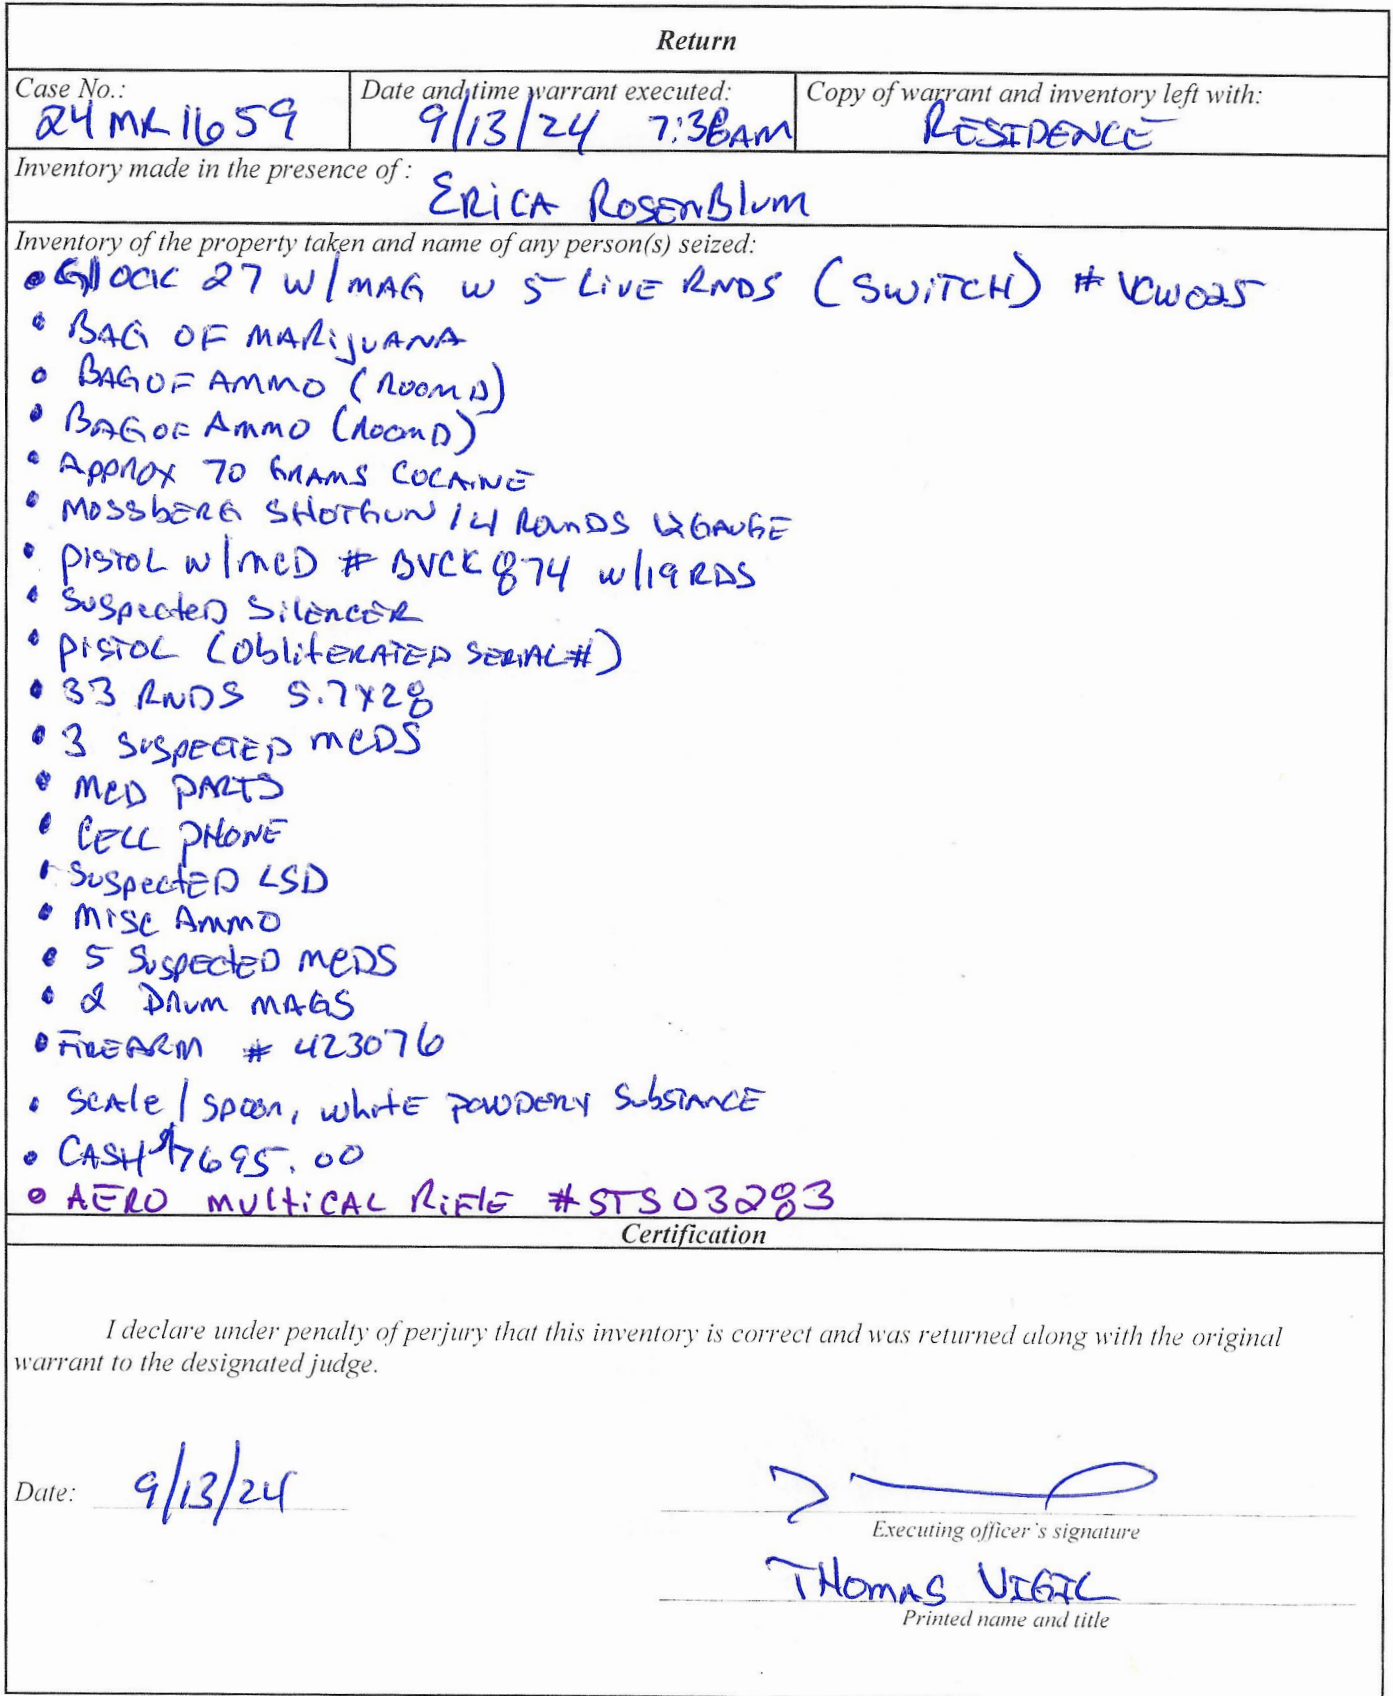 Return
Case No.:
24 MR 1659
Date and time warrant executed:
9/13/24 7:38AM
Copy of warrant and inventory left with:
RESIDENCE
Inventory made in the presence of :
ERICA ROSENBLUM
Inventory of the property taken and name of any person(s) seized:
• GLOCK 27 W/MAG W 5 LIVE RNDS (SWITCH) # VCW025
• BAG OF MARIJUANA
• BAG OF AMMO (ROOM D)
• BAG OF AMMO (ROOM D)
• APPROX 70 GRAMS COCAINE
• MOSSBERG SHOTGUN / 4 ROUNDS 12 GAUGE
• PISTOL W/MCD # BVCK874 W/19 RDS
• SUSPECTED SILENCER
• PISTOL (OBLITERATED SERIAL#)
• 33 RNDS 5.7X28
• 3 SUSPECTED MCDS
• MCD PARTS
• CELL PHONE
• SUSPECTED LSD
• MISC AMMO
• 5 SUSPECTED MCDS
• 2 DRUM MAGS
• FIREARM # 423076
• SCALE / SPOON, WHITE POWDERY SUBSTANCE
• CASH $7695.00
• AERO MULTICAL RIFLE #STS03283
Certification
I declare under penalty of perjury that this inventory is correct and was returned along with the original
warrant to the designated judge.
Date: 9/13/24
Executing officer's signature
THOMAS VIGIL
Printed name and title